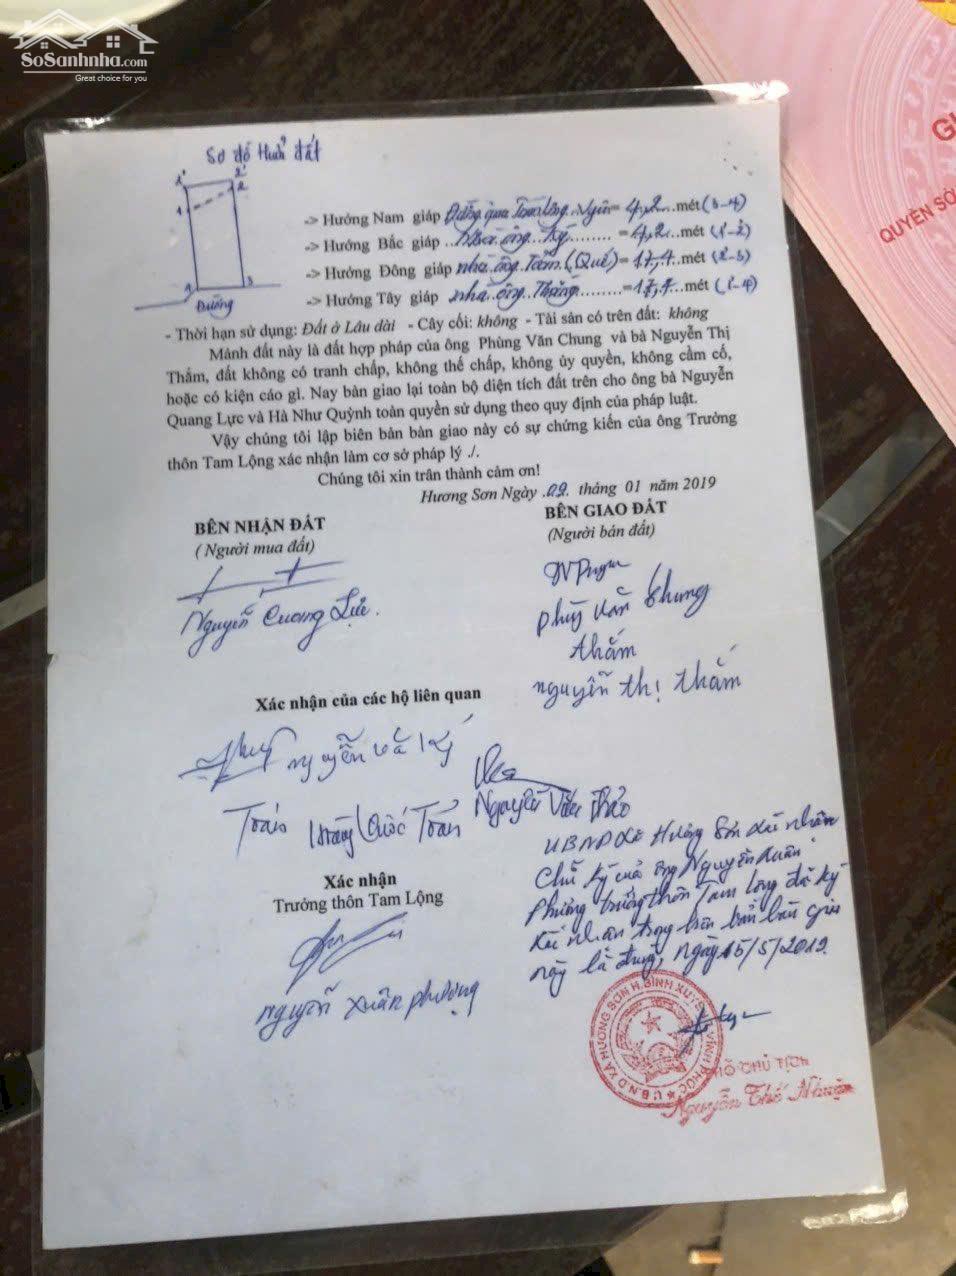 SoSanhnha.com
Great choice for you
Sơ đồ thửa đất
1' 2'
1 2
4 3
Đường
-> Hướng Nam giáp Đường qua Tam Lộng = 4,2 mét (3-4)
-> Hướng Bắc giáp nhà ông Ký = 4,2 mét (1'-2')
-> Hướng Đông giáp nhà ông Toản (Quế) = 17,7 mét (2'-3)
-> Hướng Tây giáp nhà ông = 17,7 mét (1'-4)
- Thời hạn sử dụng: Đất ở Lâu dài - Cây cối: không - Tài sản có trên đất: không
Mảnh đất này là đất hợp pháp của ông Phùng Văn Chung và bà Nguyễn Thị
Thắm, đất không có tranh chấp, không thế chấp, không ủy quyền, không cầm cố,
hoặc có kiện cáo gì. Nay bàn giao lại toàn bộ diện tích đất trên cho ông bà Nguyễn
Quang Lực và Hà Như Quỳnh toàn quyền sử dụng theo quy định của pháp luật.
Vậy chúng tôi lập biên bản bàn giao này có sự chứng kiến của ông Trưởng
thôn Tam Lộng xác nhận làm cơ sở pháp lý ./.
Chúng tôi xin trân thành cảm ơn!
Hương Sơn Ngày .09. tháng 01 năm 2019
BÊN NHẬN ĐẤT
( Người mua đất)
Nguyễn Quang Lực.
BÊN GIAO ĐẤT
(Người bán đất)
Phùng Văn Chung
thắm
nguyễn thị thắm
Xác nhận của các hộ liên quan
nguyễn
Toản Hoàng Quốc Toản
Nguyễn
UBND xã Hương Sơn xác nhận
chữ ký của ông Nguyễn Xuân
Phương trưởng thôn Tam Lộng đã ký
xác nhận trong biên bản bàn giao
này là đúng, ngày 15/5/2019.
Xác nhận
Trưởng thôn Tam Lộng
nguyễn xuân phương
U.B.N.D XÃ HƯƠNG SƠN H. BÌNH XUYÊN T. VĨNH PHÚC
PHÓ CHỦ TỊCH
Nguyễn Thế
GI
QUYỀN SỞ